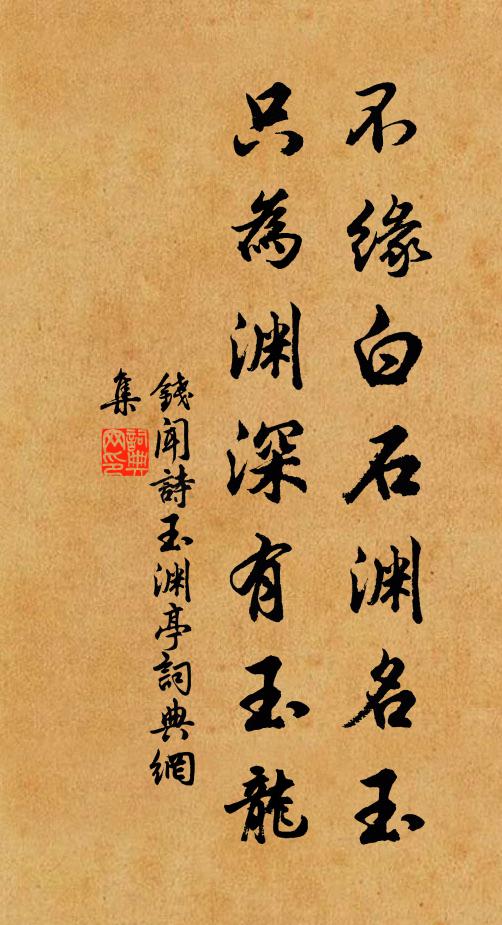 不緣白石淵名玉
只為淵深有玉龍
錢聞詩玉淵亭詞典網
集
詞典網印